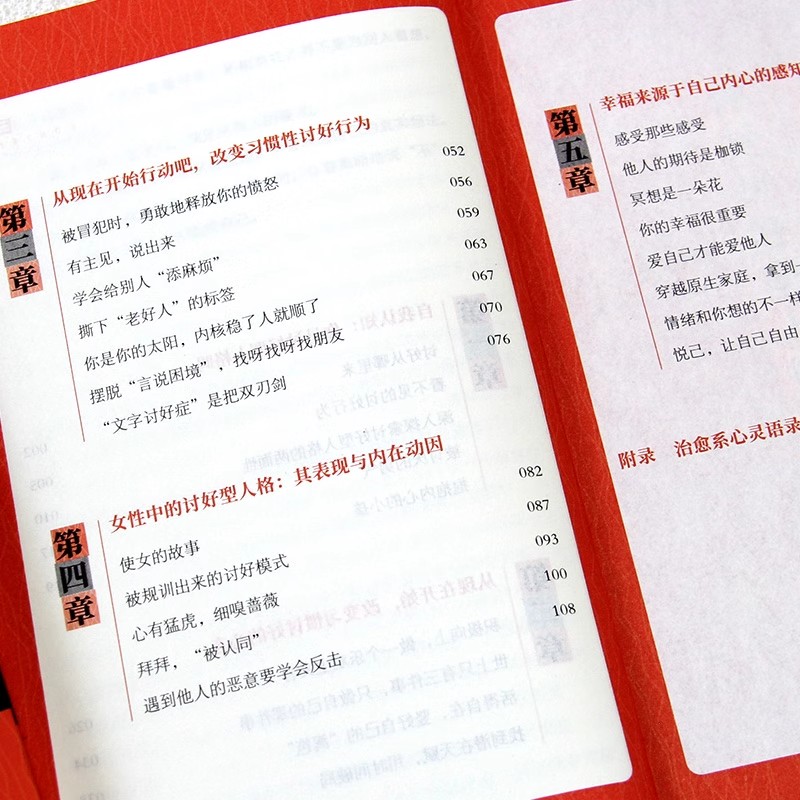 第三章
从现在开始行动吧，改变习惯性讨好行为
被冒犯时，勇敢地释放你的愤怒 052
有主见，说出来 056
学会给别人“添麻烦” 059
撕下“老好人”的标签 063
你是你的太阳，内核稳了人就顺了 067
摆脱“言说困境”，找呀找呀找朋友 070
“文字讨好症”是把双刃剑 076
第四章
女性中的讨好型人格：其表现与内在动因
使女的故事 082
被规训出来的讨好模式 087
心有猛虎，细嗅蔷薇 093
拜拜，“被认同” 100
遇到他人的恶意要学会反击 108
第五章
幸福来源于自己内心的感知
感受那些感受
他人的期待是枷锁
冥想是一朵花
你的幸福很重要
爱自己才能爱他人
穿越原生家庭，拿到一
情绪和你想的不一样
悦己，让自己自由
附录 治愈系心灵语录